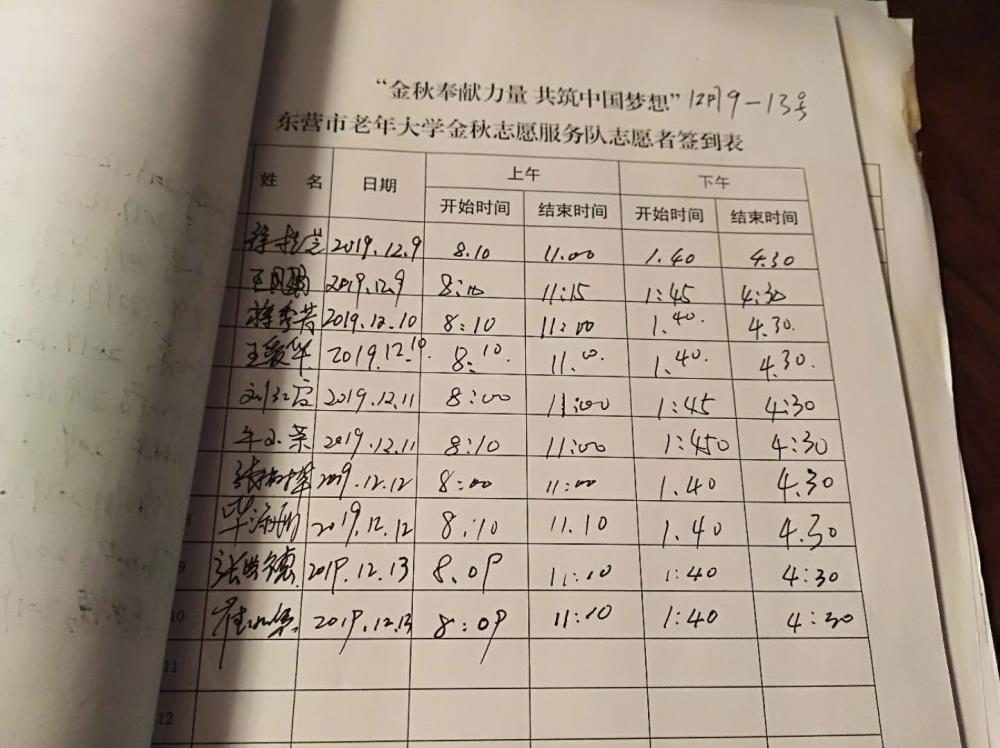 “金秋奉献力量 共筑中国梦想” 12月9-13号
东营市老年大学金秋志愿服务队志愿者签到表
姓 名 日期 上午 下午
开始时间 结束时间 开始时间 结束时间
2019.12.9 8.10 11.00 1.40 4.30
2019.12.9 8:10 11:15 1:45 4:30
蒋秀芳 2019.12.10 8:10 11:00 1.40. 4.30.
王爱华 2019.12.10. 8:10. 11.00. 1.40. 4.30.
2019.12.11 8:00 11:00 1:45 4:30
2019.12.11 8:10 11:00 1:450 4:30
2019.12.12 8:00 11:00 1.40 4.30
8 2019.12.12 8:10 11.10 1.40 4.30
9 2019.12.13 8.09 11:10 1:40 4:30
10 2019.12.13 8:09 11:10 1:40 4:30
11
12